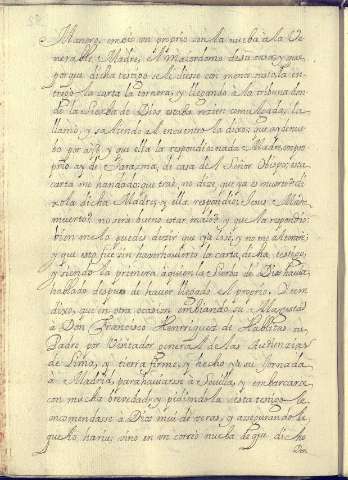 Milagro, embio un proprio con la nueba à la Ve-
nerable Madre, Maiordomo de su casa, y que
porque dicha testigo se lo diese con menos susto, la en-
tregò la carta la tornera; y llegando à la tribuna don-
de la Sierba de Dios estaba recien comulgada, la
llamò, y saliendo al encuentro la dixo: que ay de nue-
bo por acà? y que ella la respondiò: nada Madre, un pro-
prio ay de Tarazona, de casa del Señor Obispo; esta
carta me han dado que trae, no dize que ya es muerto? di-
xo la dicha Madre; y ella respondiò: Jesus Madre
muerto? no serà bueno estar malo? y que la repondiò:
bien me lo puedes dezir que ya lo sè, y no me alteraré;
y que esto fue sin haver habierto la carta, dicha testigo,
y siendo la primera à quien la Sierba de Dios havia
hablado despues de haver llegado el proprio. Item
dixo, que en otra ocasion embiando su Magestad
à Don Francisco Henrriquez de Hablitas su
Padre por Visitador General de las Audienzias
de Lima, y tierra firme, y hecho ya su Jornada
à Madrid, para passarse à Sevilla, y embarcarse
con mucha brevedad, y pidiendo la esta testigo le
encomendasse à Dios mui de veras, y assegurando le
que lo haria, vino en un correo nueba de que dicho
Don